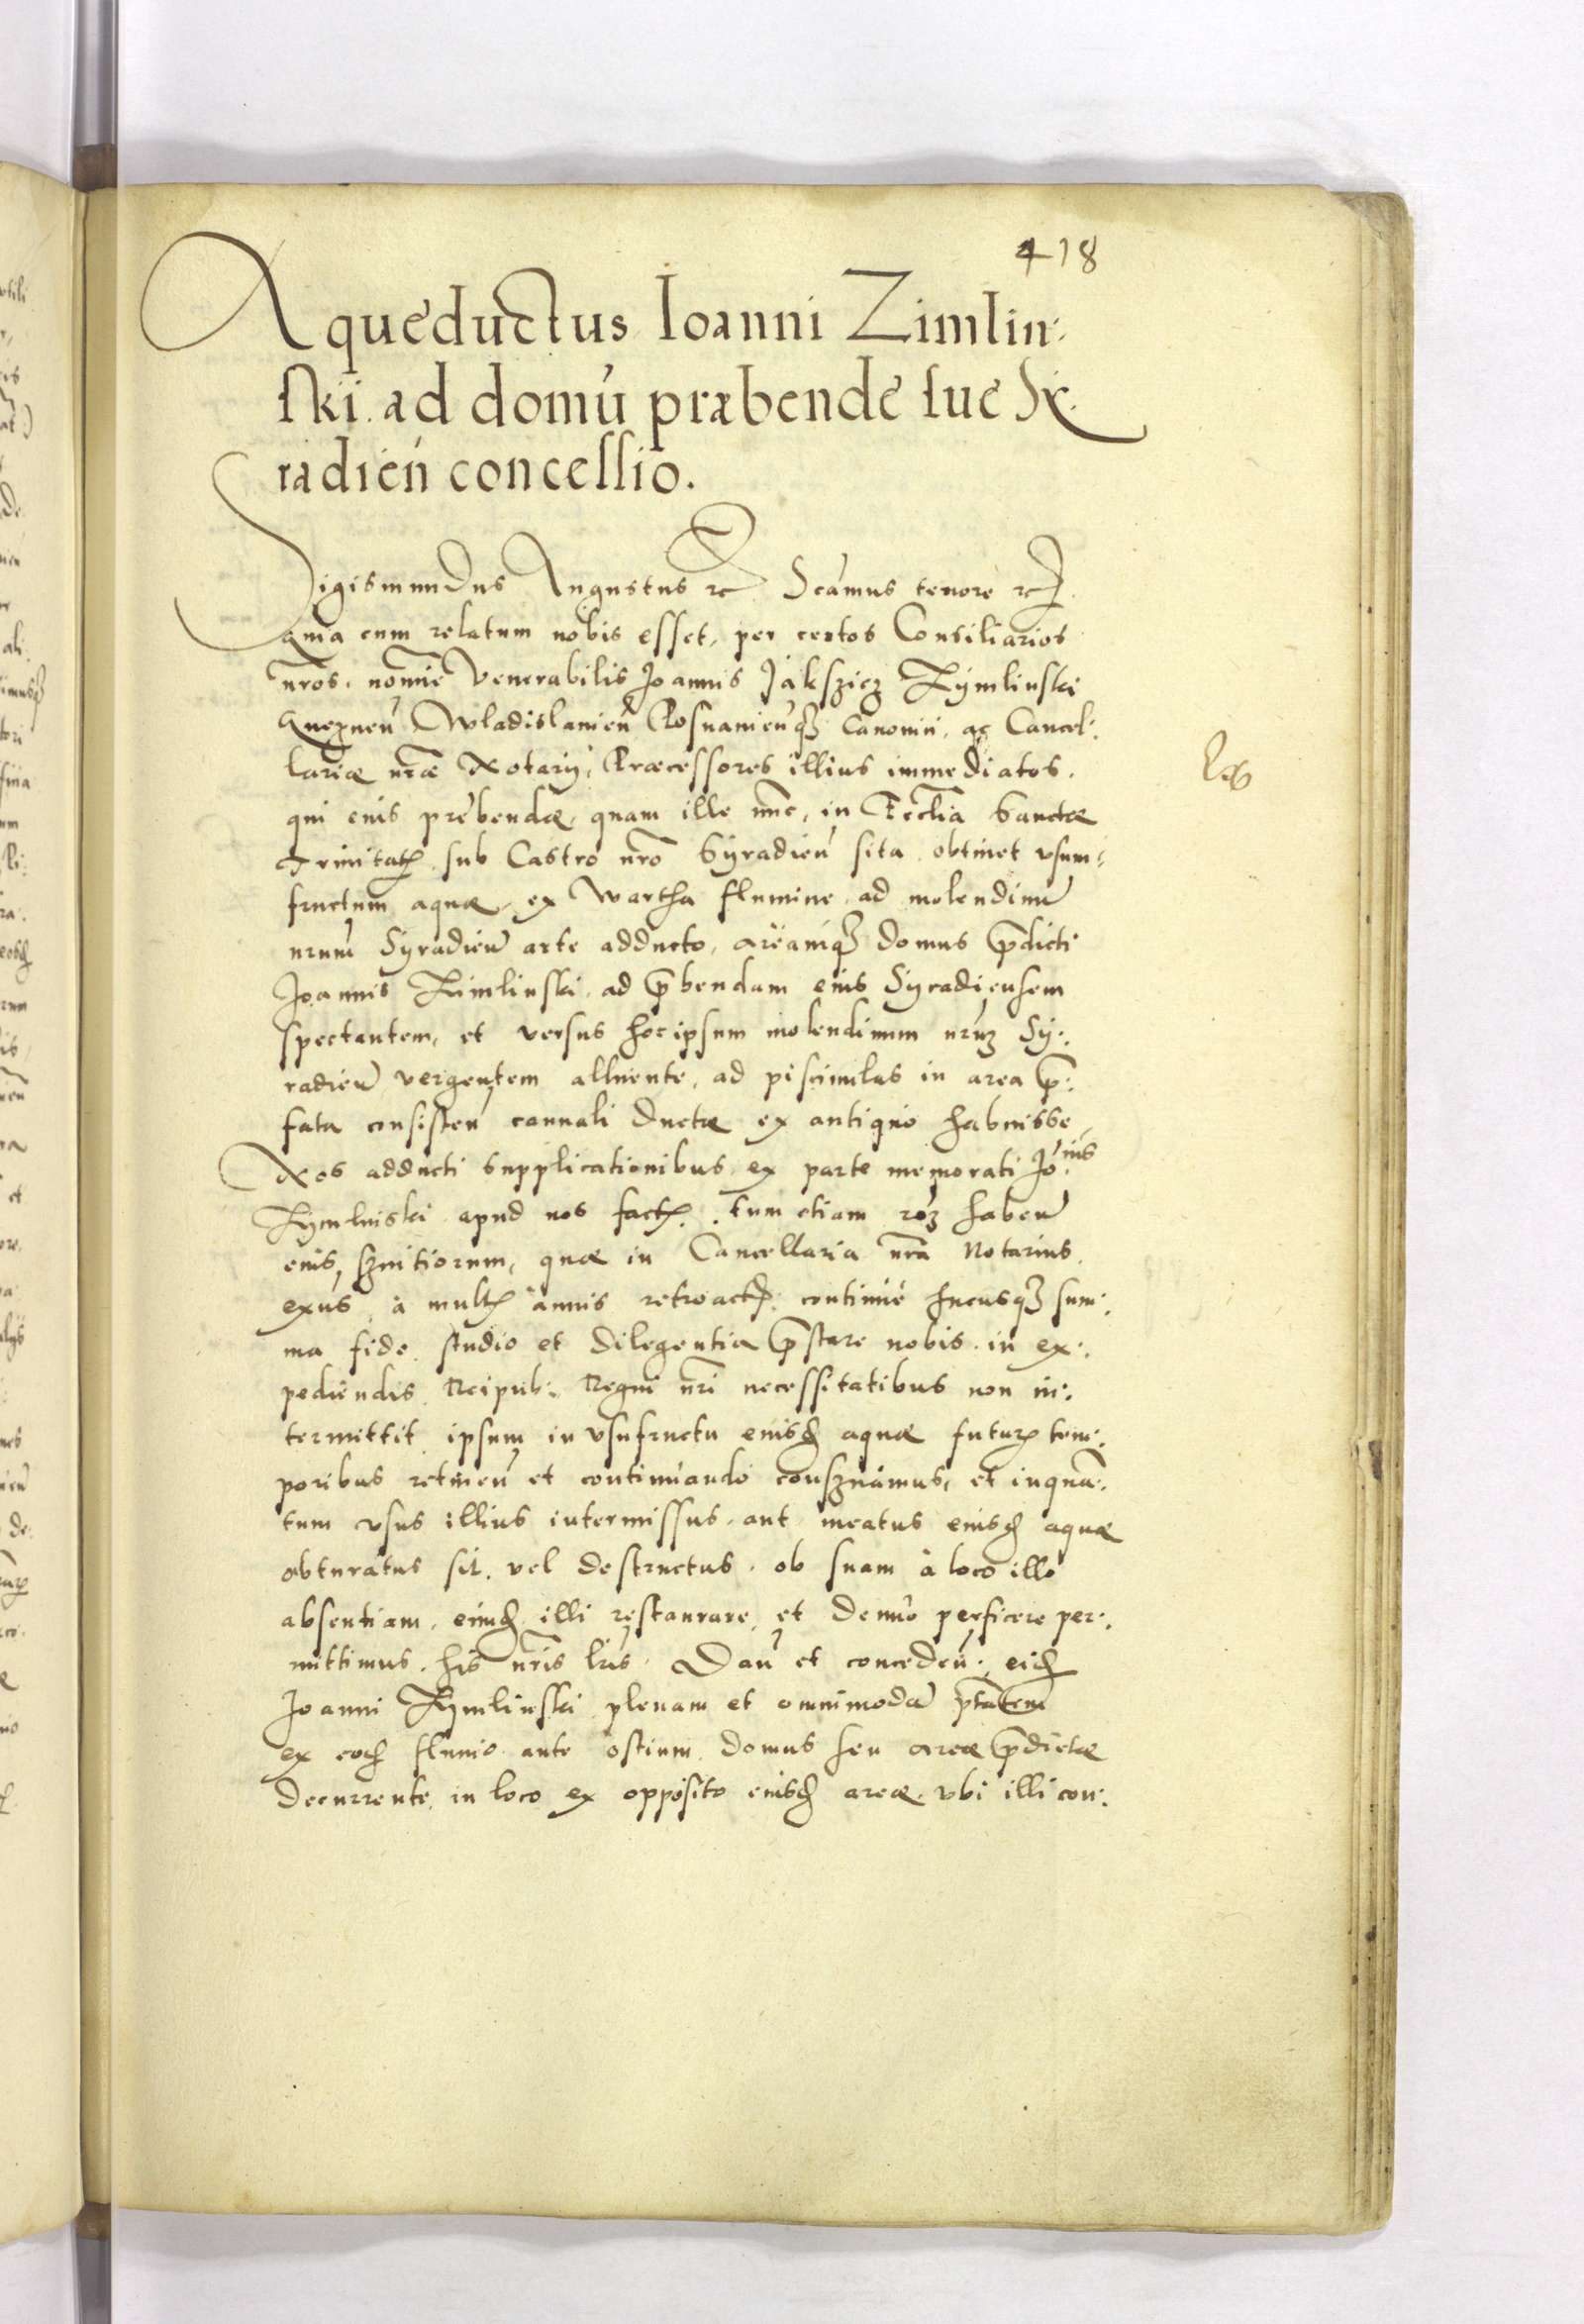 418
Aqueductus Ioanni Zimlin:
skii ad domū præbende sue Sÿ:
radień concessio.
Sigismundus Augustus rc Scamus tenore rc
quia cum relatum nobis esset, per certos Consiliarios
nr̃os. noīe Venerabilis Joannis Jakszicz Zÿmlinski
Gneznen̄ Wladislauien̄ Posnanien̄q3 Canonici, ac Cancel:
lariæ nr̃æ Notarÿ, Præcessores illius immediatos.
qui eius prebendæ, quam ille nūc, in Ecclīa Sanctæ
Trinitatꝭ sub Castro nr̃o Sÿradien̄ sita obtinet vsum:
fructum aquæ, ex Wartha flumine ad molendinū
nrum̄ Sÿradien̄ arte adducto, areamq3 domus p̄dicti
Joannis Zimlinski, ad p̄bendam eius Sÿradiensem
spectantem, et versus hoc ipsum molendinum nrūz Sÿ:
radien̄ vergentem alluente, ad piscinulas in area p̄:
fata consisten̄ cannali ductæ ex antiquo habuisse,
Nos adducti supplicationibus ex parte memorati Jo:nis
Zÿmlinski apud nos factꝭ. tum etiam roz haben̄
eius, szuitiorum, quæ in Cancellaria nr̃a Notarius
exus à multꝭ annis retroactꝭ continué hucusq3 sum:
ma fide studio et dilegentia p̄stare nobis in ex:
pediendis Reipub: Regni nr̃i necessitatibus non in:
termittit ipsum in vsufructu eiusd aquæ futurꝭ tem:
poribus retinen̄ et continuando consznamus, et inquā:
tum vsus illius intermissus aut meatus eiusd aquæ
obturatus sit. vel destructus. ob suam à loco illo
absentiam, eumd illi restaurare et denuo perficere per:
mittimus. his nr̃is lr̃is. Dan̄ et conceden̄: eid
Joanni Zÿmlinski plenam et omnimodā ptātem
ex eod fluuio ante ostium domus seu areæ p̄dictæ
decurrente in loco ex opposito eiusd areæ vbi illi con: